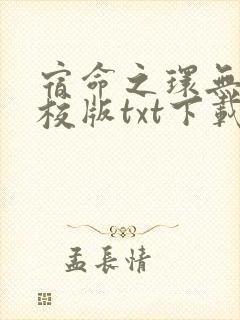 宿命之環無
校版txt下載
孟長情